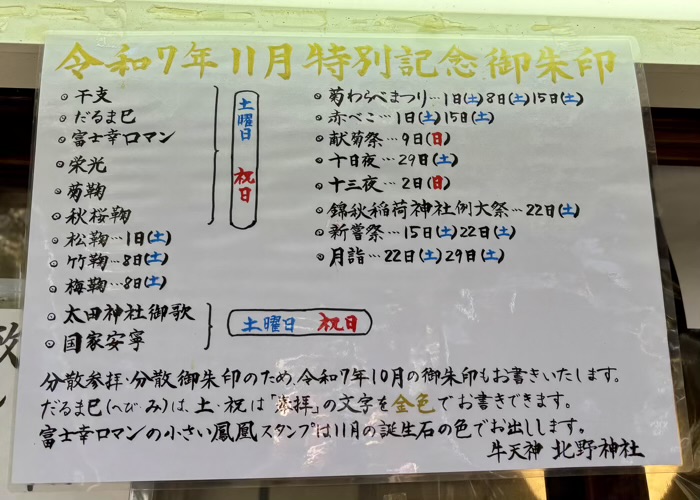 令和7年11月特別記念御朱印
。干支
。だるま巳
。富士幸ロマン
。栄光
。菊鞠
。秋桜鞠
土曜日 祝日
。松鞠…1日(土)
。竹鞠…8日(土)
。梅鞠…8日(土)
。太田神社御歌
。国家安寧
土曜日 祝日
。菊わらべまつり…1日(土)8日(土)15日(土)
。赤べこ…1日(土)15日(土)
。献菊祭…9日(日)
。十日夜…29日(土)
。十三夜…2日(日)
。錦秋稲荷神社例大祭…22日(土)
。新嘗祭…15日(土)22日(土)
。月詣…22日(土)29日(土)
分散参拝・分散御朱印のため、令和7年10月の御朱印もお書きいたします。
だるま巳(へび・み)は、土・祝は「奉拝」の文字を金色でお書きできます。
富士幸ロマンの小さい鳳凰スタンプは11月の誕生石の色でお出しします。
牛天神 北野神社